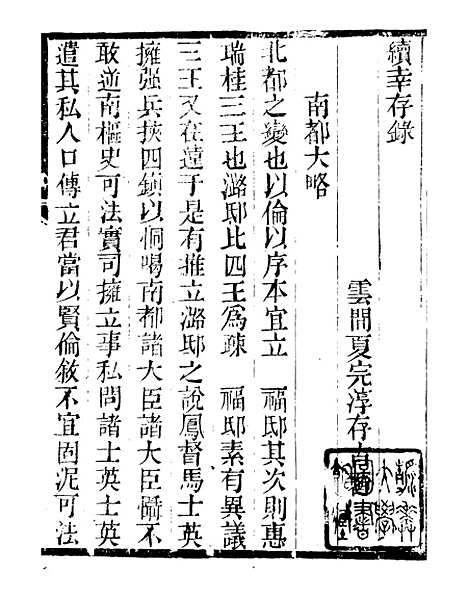 續幸存錄
雲間夏完淳存古
南都大略
北都之變也以倫以序本宜立　福邸其次則惠
瑞桂三王也潞邸比四王為疎　福邸素有異議
三王又在遠于是有推立潞邸之說鳳督馬士英
擁强兵挾四鎮以恫喝南都諸大臣諸大臣懾不
敢逆南樞史可法實司擁立事私問諸士英士英
遣其私人口傳立君當以賢倫敘不宜固泥可法